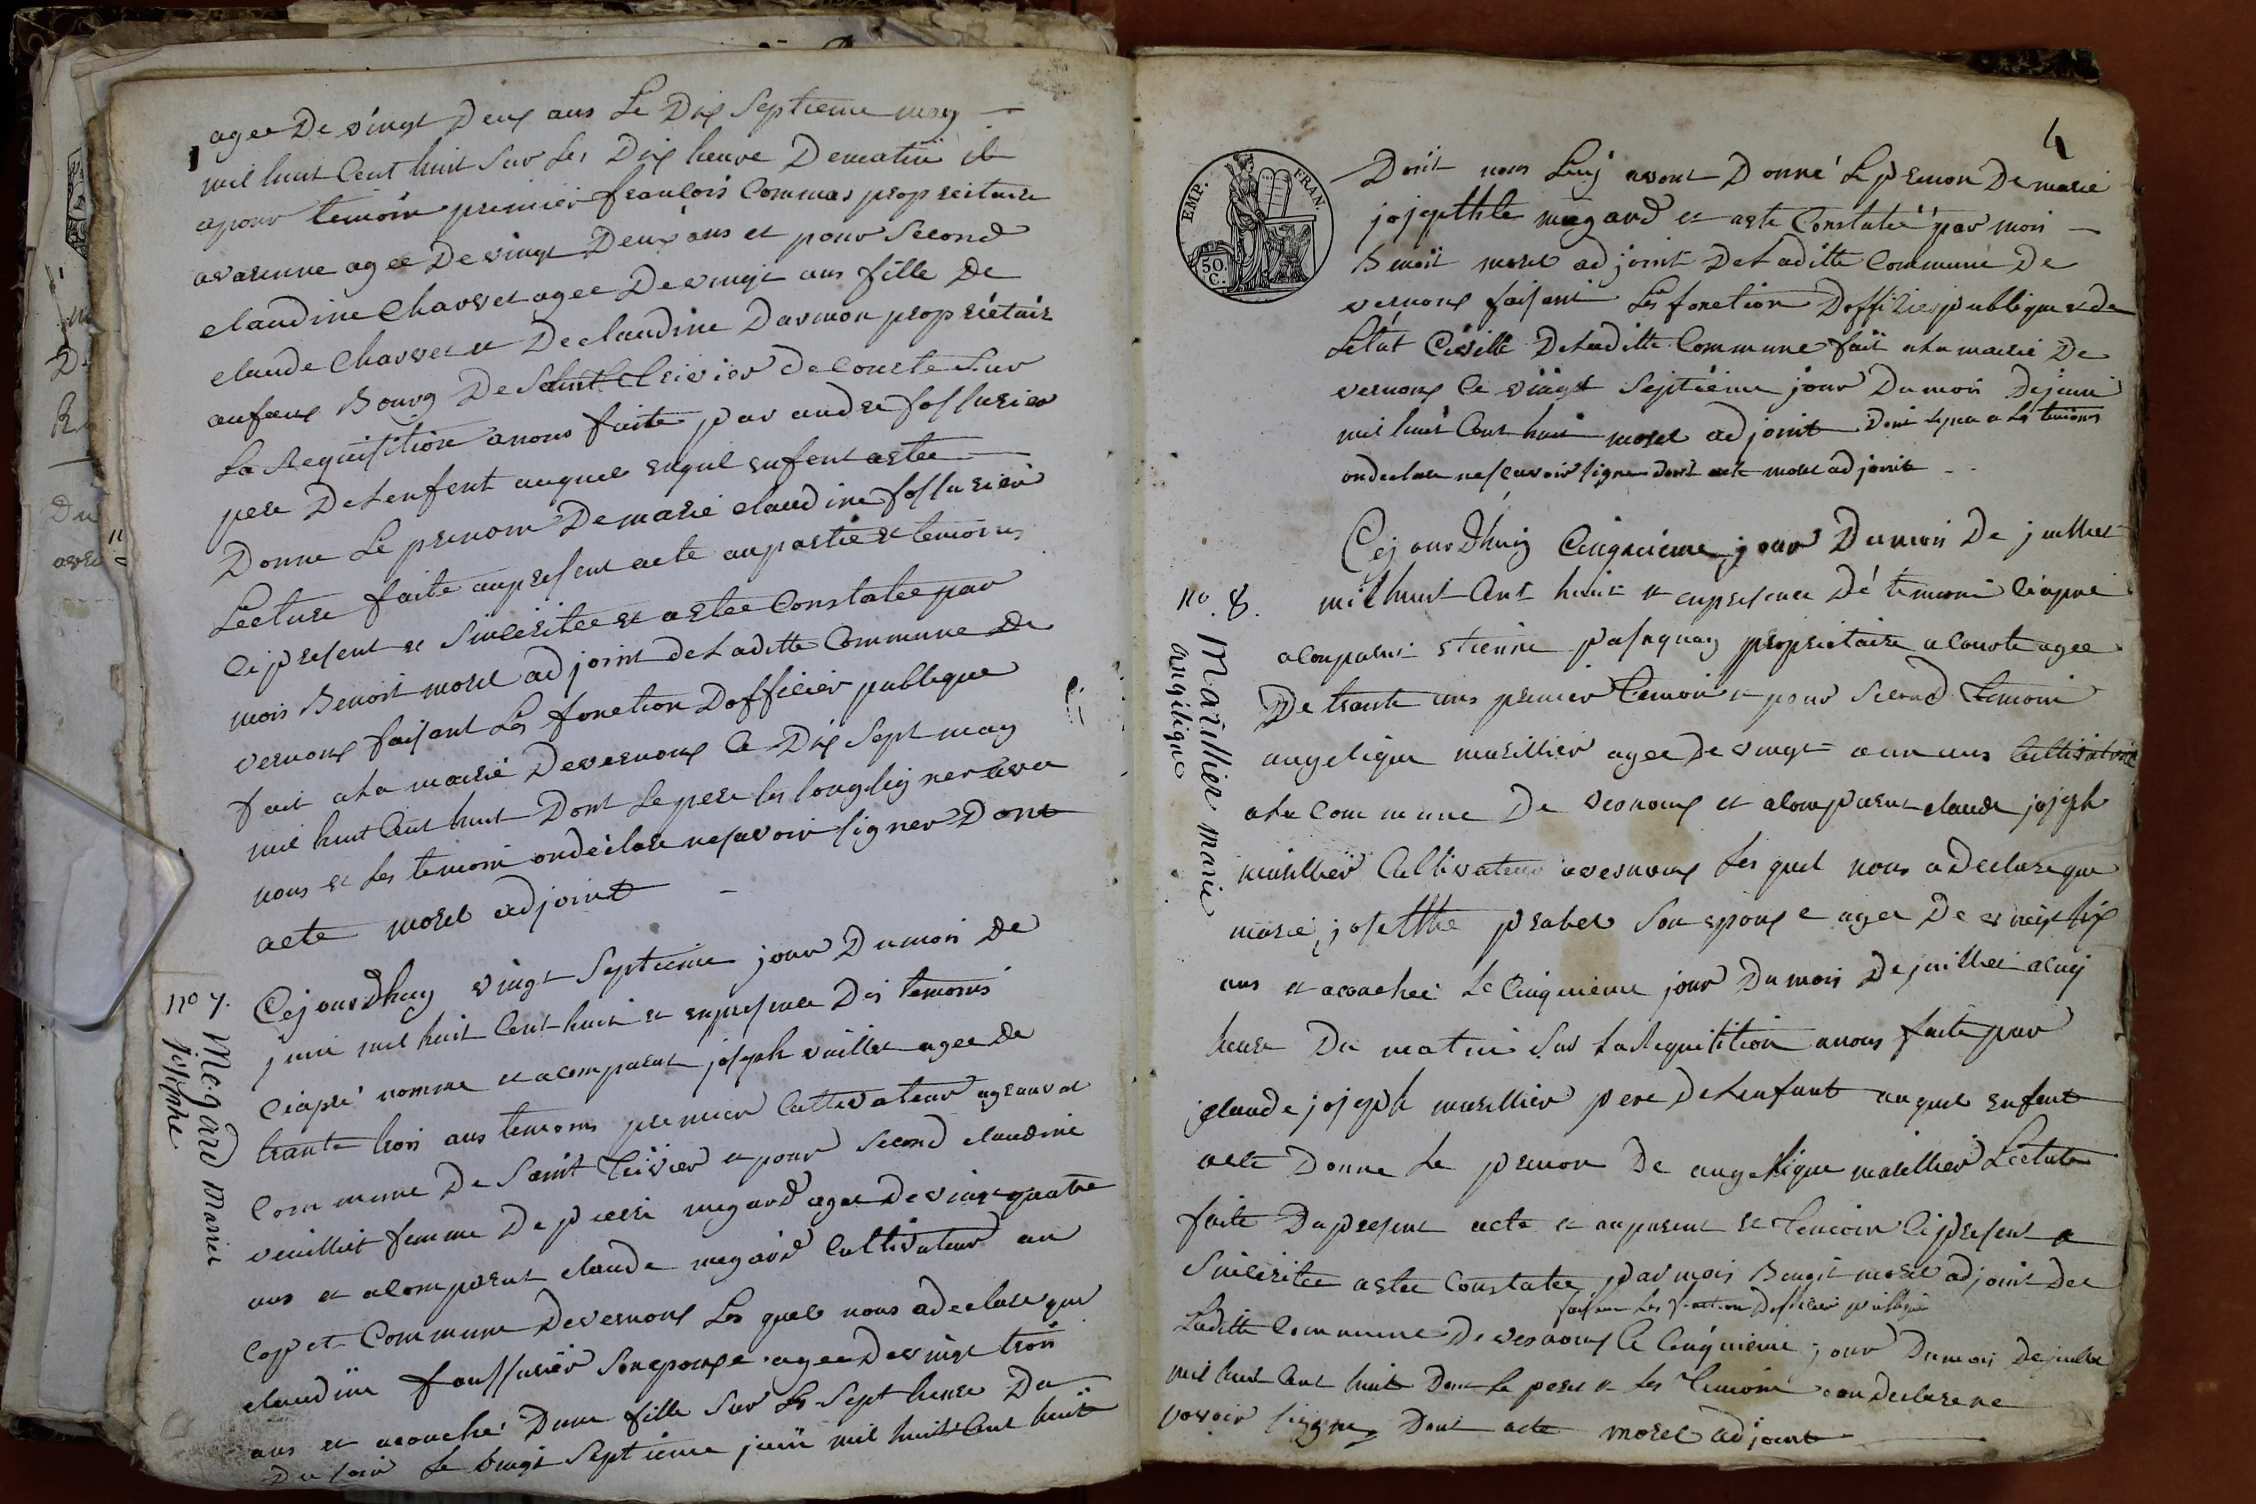 agee De vingt Deux ans Le Dix Septieme may
mil huit Cent huit Sur Les Dix heure Dematin il
apour temoin premier francois Commas propreitaire
avarenne agee De vingt Deux ans et pour Second
claudine Charvet agee De vingt ans fille De
claude Charvet et De claudine Darmon propriétair
Bourg De Saint Trivier De Courte Sur
La Requisition anous faite par andre fossurier
pere DeLenfent auquel enfent astee
Donne Le prenom De marie claudine fossurier
Lecture faite aupresent acte aupartie et temoins
Ci present et Sincèritee et astee Constatee par
mois Benoit morel adjoint deLaditte Commune De
vernoux faisant Les fonction Dofficier publique
fait aLa mairié Devernoux Ce Dix Sept may
mil huit Cent huit Dont Le pere Signer avec
nous et Les temoin ondéclare nesavoir signer Dont
acte morel adjoint
no 7.
Megard Mariee
josephte
Cejourdhuy vingt Septieme jour Dumois De
juin mil huit Cent huit et enpresence Des temoins
Ciaprè nomme et acomparut joseph vuillet agee De
trante trois ans temoins premier Cultivateur
Commune De Saint Trivier et pour Second claudine
vuilliet femme De pierre megard agee De vint quatre
ans et acomparut claude megard Cultivateur au
Commune Devernoux Les quel nous adeclare que
claudine foussurier Sonepouse agee De vingt trois
ans et acouche Dune fille Sur Les Sept heure Du
Du soir Le vingt Septieme juin mil huit Cent huit
4
EMP. FRAN.
50. C.
Dont nous Luy avont Donné Le prenon De marie
josepthte megard et aste Constateé par mois
Benoit morel adjoint DeLaditte Commune De
vernoux faisant Les fonction Dofficier publique et de
Létat Civille DeLaditte Commune fait aLa mairie De
vernoux Ce vingt Septieme jour Dumois Dejuin
mil huit Cent huit morel adjoint Dont a Les temoins
ondeclare nescavoir signe dont acte morel adjoint
no. 8.
Marillier marie
angelique
Cejourdhuy Cinquieme jour Dumois De juillet
mil huit Cent huit et enpresence Dé temoin Ciaprè
acomparut etienne pasnquay propriétaire a Courte agee
De trante ans premier temoin et pour Second temoin
angelique marillier agee De vingt a un ans Cultivatrice
aLa Commune De vernoux et acomparut claude joseph
marillier Cultivateur avernoux Les quel nous a Declare que
marie josephte prabel Son epouse agee De vingt six
ans et acouchee Le Cinquieme jour Du mois De juillet a
heure Du matin Sur La Requitition anous faite par
claude joseph marillier pere DeLenfant auquel enfent
aete Donne Le prenon De angelique marillier Lecture
faite Du present acte et auparent et temoin Cipresent et
Sincéritee astee Constatee par mois Benoit morel adjoint De
faisant Les fonction Dofficier publique
Laditte Commune De vernoux Ce Cinquieme jour Dumois De juillet
mil huit Cent huit Dont Le pere et Les temoin on Declare ne
savoir signe Dont acte morel adjoint